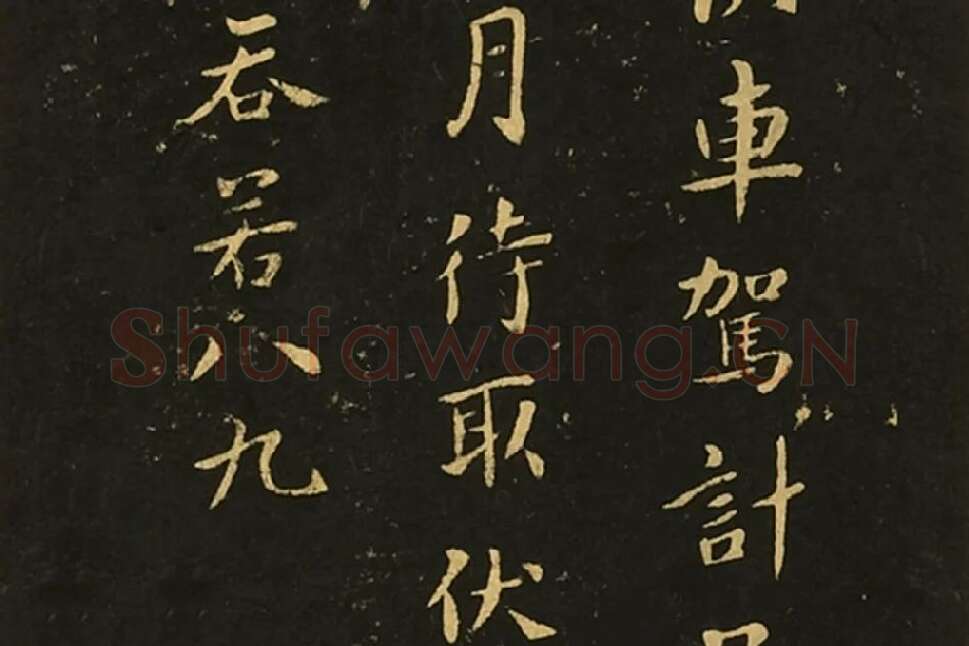 車駕計
月待取伏
吞若八九
Shufawang.CN